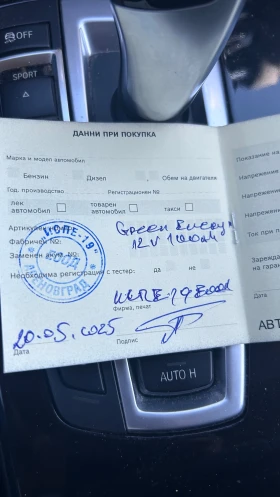 OFF
SPORT
ДАННИ ПРИ ПОКУПКА
Марка и модел автомобил
Бензин Дизел Обем на двигателя
Год. производство Регистрационен №
лек автомобил товарен автомобил такси
Артикулен
Green Energy
Фабричен №:
12V 100ah
Заменен акум. №:
Необходима регистрация с тестер: да не
"ИСПЕ-19"
ООД
ЛЕСНОВГРАД
ИСПЕ-19 ЕООД
Фирма, печат
20.05.2025
Дата
Подпис
Показание на
Напрежение
Напрежение
Напрежение
Ток при
Зарежда
на гаран
Дата
АВТ
AUTO H